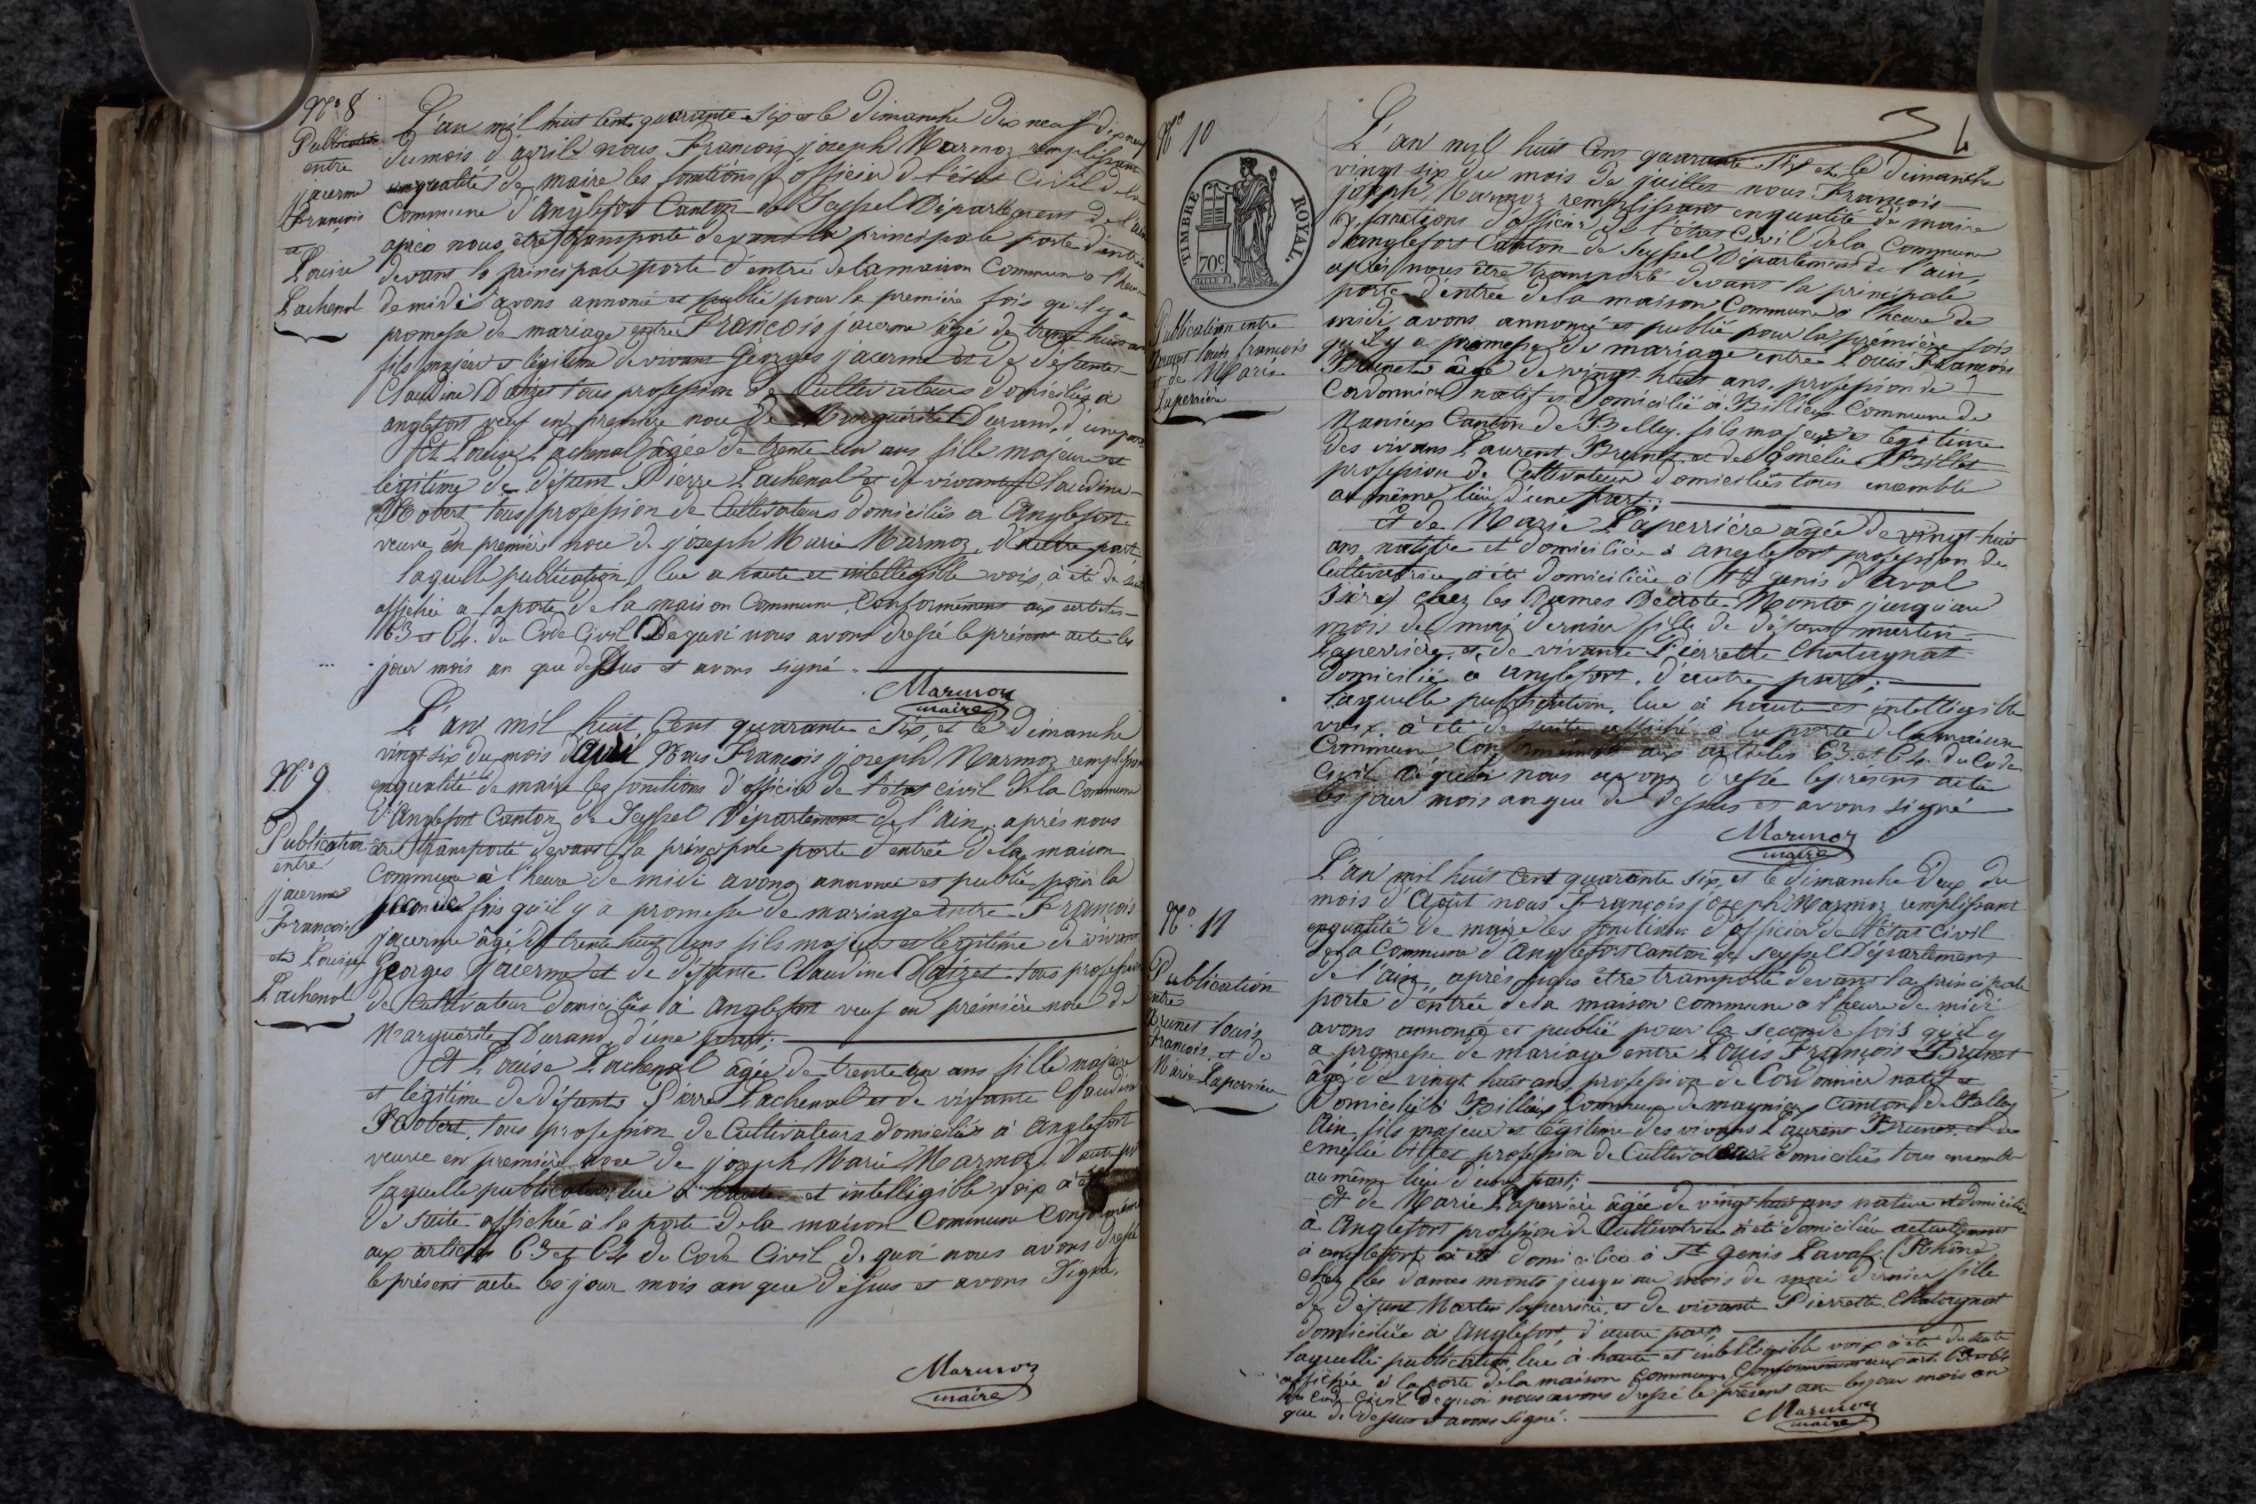 N.° 8
Publication
entre
jacerme
François
et
Louise
Lachenal
L'an mil huit cent quarante six et le dimanche dix neuf
du mois d'avril nous François joseph Marmoz remplissant
enqualité de maire les fonctions d'officier de l'état Civil de la
Commune d'Anglefort Canton de Seyssel Département de l'ain
après nous être transporté devant la principale porte d'entrée
devant la principale porte d'entré dela maison Commune a l'heure
de midi avons annoncé et publié pour la première fois qu'il y a
promesse de mariage entre François jacerme âgé de trente huit ans
fils majeur et légitime de vivant Georges jacerme et de défunte
Claudine tous profession de Cultivateurs domiciliés a
anglefort veuf en première noce de Marguérite Durand, d'une part
Et Louise Lachenal âgée de trente un ans fille majeure et
légitime de défunt Pierre Lachenal et de vivante Claudine
Robert tous profession de Cultivateurs domiciliés a Anglefort
veuve en première noce de joseph Marie Marmoz, d'autre part
laquelle publication, lue a haute et intelligible voix, à été de suite
affichée a la porte de la maison Commune, Conformément aux articles
63 et 64. du Code Civil De quoi nous avons dressé le présent acte les
jour mois an que dessus et avons signé.
Marmoz
maire
N.° 9
Publication
entre
jacerme
François
et Louise
Lachenal
L'an mil huit Cent quarante Six, et le dimanche
vingt six du mois d'avril Nous François joseph Marmoz remplissant
enqualité de maire les fonctions d'officier de l'état civil dela Commune
d'Anglefort Canton de Seyssel Département de l'ain, après nous
être transporté devant la principale porte d'entrée dela maison
Commune à l'heure de midi avons annoncé et publié pour la
seconde fois qu'il y a promesse de mariage entre François
jacerme âgé de trente huit ans fils majeur et légitime de vivant
Georges jacerme et de défunte Claudine tous profession
de Cultivateur domiciliés à Anglefort veuf en première noce de
Marguérite Durand, d'une part.
Et Louise Lachenal âgée de trente un ans fille majeure
et légitime de défunt Pierre Lachenal et de vivante Claudine
Robert, tous profession de Cultivateurs domiciliés à Anglefort
veuve en première noce de joseph Marie Marmoz. d'autre part
laquelle publication, lue a haute et intelligible voix à été
de suite affichée à la porte dela maison Commune Conformément
aux articles 63 et 64 du Code Civil de quoi nous avons dressé
le présent acte les jour mois an que dessus et avons signé.
Marmoz
maire
N.° 10
TIMBRE ROYAL.
70c
Publication entre
Brunet louis françois
et de Marie
Laperrière
L'an mil huit Cent quarante Six et le dimanche
vingt six du mois de juillet nous François
joseph Marmoz remplissant enqualité de maire
les fonctions d'officier de l'état Civil dela Commune
d'anglefort Canton de Seyssel Département de l'ain,
après nous être transporté devant la principale
porte d'entrée dela maison Commune a l'heure de
midi avons annoncé et publié pour la première fois
qu'il y a promesse de mariage entre Louis François
Brunet âgé de vingt huit ans, profession de
Cordonnier natif et domicilié à Billieux Commune de
Canton de Belley. fils majeur et légitime
des vivans Laurent Brunet et de Emélie Billet
profession de Cultivateur domiciliés tous ensemble
au même lieu d'une part;
Et de Marie Laperrière âgée de vingt huit
ans native et domiciliée à anglefort profession de
Cultivatrice, a été domiciliée à St genis d'laval
chez les Dames Monto jusqu'au
mois de mai dernier fille de défunt martin
Laperrière, et de vivante Pierrette Chatagnat
domiciliée a anglefort. d'autre part;
laquelle publication, lue à haute et intelligible
voix, à été de suite affichée à la porte dela maison
Commune Conformément aux articles 63 et 64. du Code
Civil De quoi nous avons dressé le présent acte
les jour mois an que de dessus et avons signé
Marmoz
maire
N.° 11
Publication
entre
Brunet louis
François, et de
Marie Laperrière
L'an mil huit cent quarante six, et le dimanche deux du
mois d'Août nous François joseph Marmoz remplissant
enqualité de maire les fonctions d'officier de l'état Civil
dela Commune d'Anglefort Canton de Seyssel Département
de l'ain, après nous être transporté devant la principale
porte d'entrée dela maison commune a l'heure de midi
avons annoncé et publié pour la seconde fois qu'il y
a promesse de mariage entre Louis François Brunet
âgé de vingt huit ans, profession de Cordonnier natif et
domicilié à Billieux Commune de canton de Belley
Ain, fils majeur et légitime des vivans Laurent Brunet et de
emélie Billet profession de Cultivateurs domiciliés tous ensemble
au même lieu d'une part;
Et de Marie Laperrière âgée de vingt huit ans native et domiciliée
à Anglefort profession de Cultivatrice a été domiciliée actuellement
à anglefort a été domiciliée à St genis Laval (Rhône)
chez les dames monto jusqu'au mois de mai dernier fille
de défunt Martin laperrière, et de vivante Pierrette Chatagnat
domiciliée à Anglefort, d'autre part,
laquelle publication, lue à haute et intelligible voix à été de suite
affichée à la porte dela maison commune Conformément aux art. 63 et 64
du Code Civil De quoi nous avons dressé le présent acte les jour mois an
que de dessus et avons signé.
Marmoz
maire